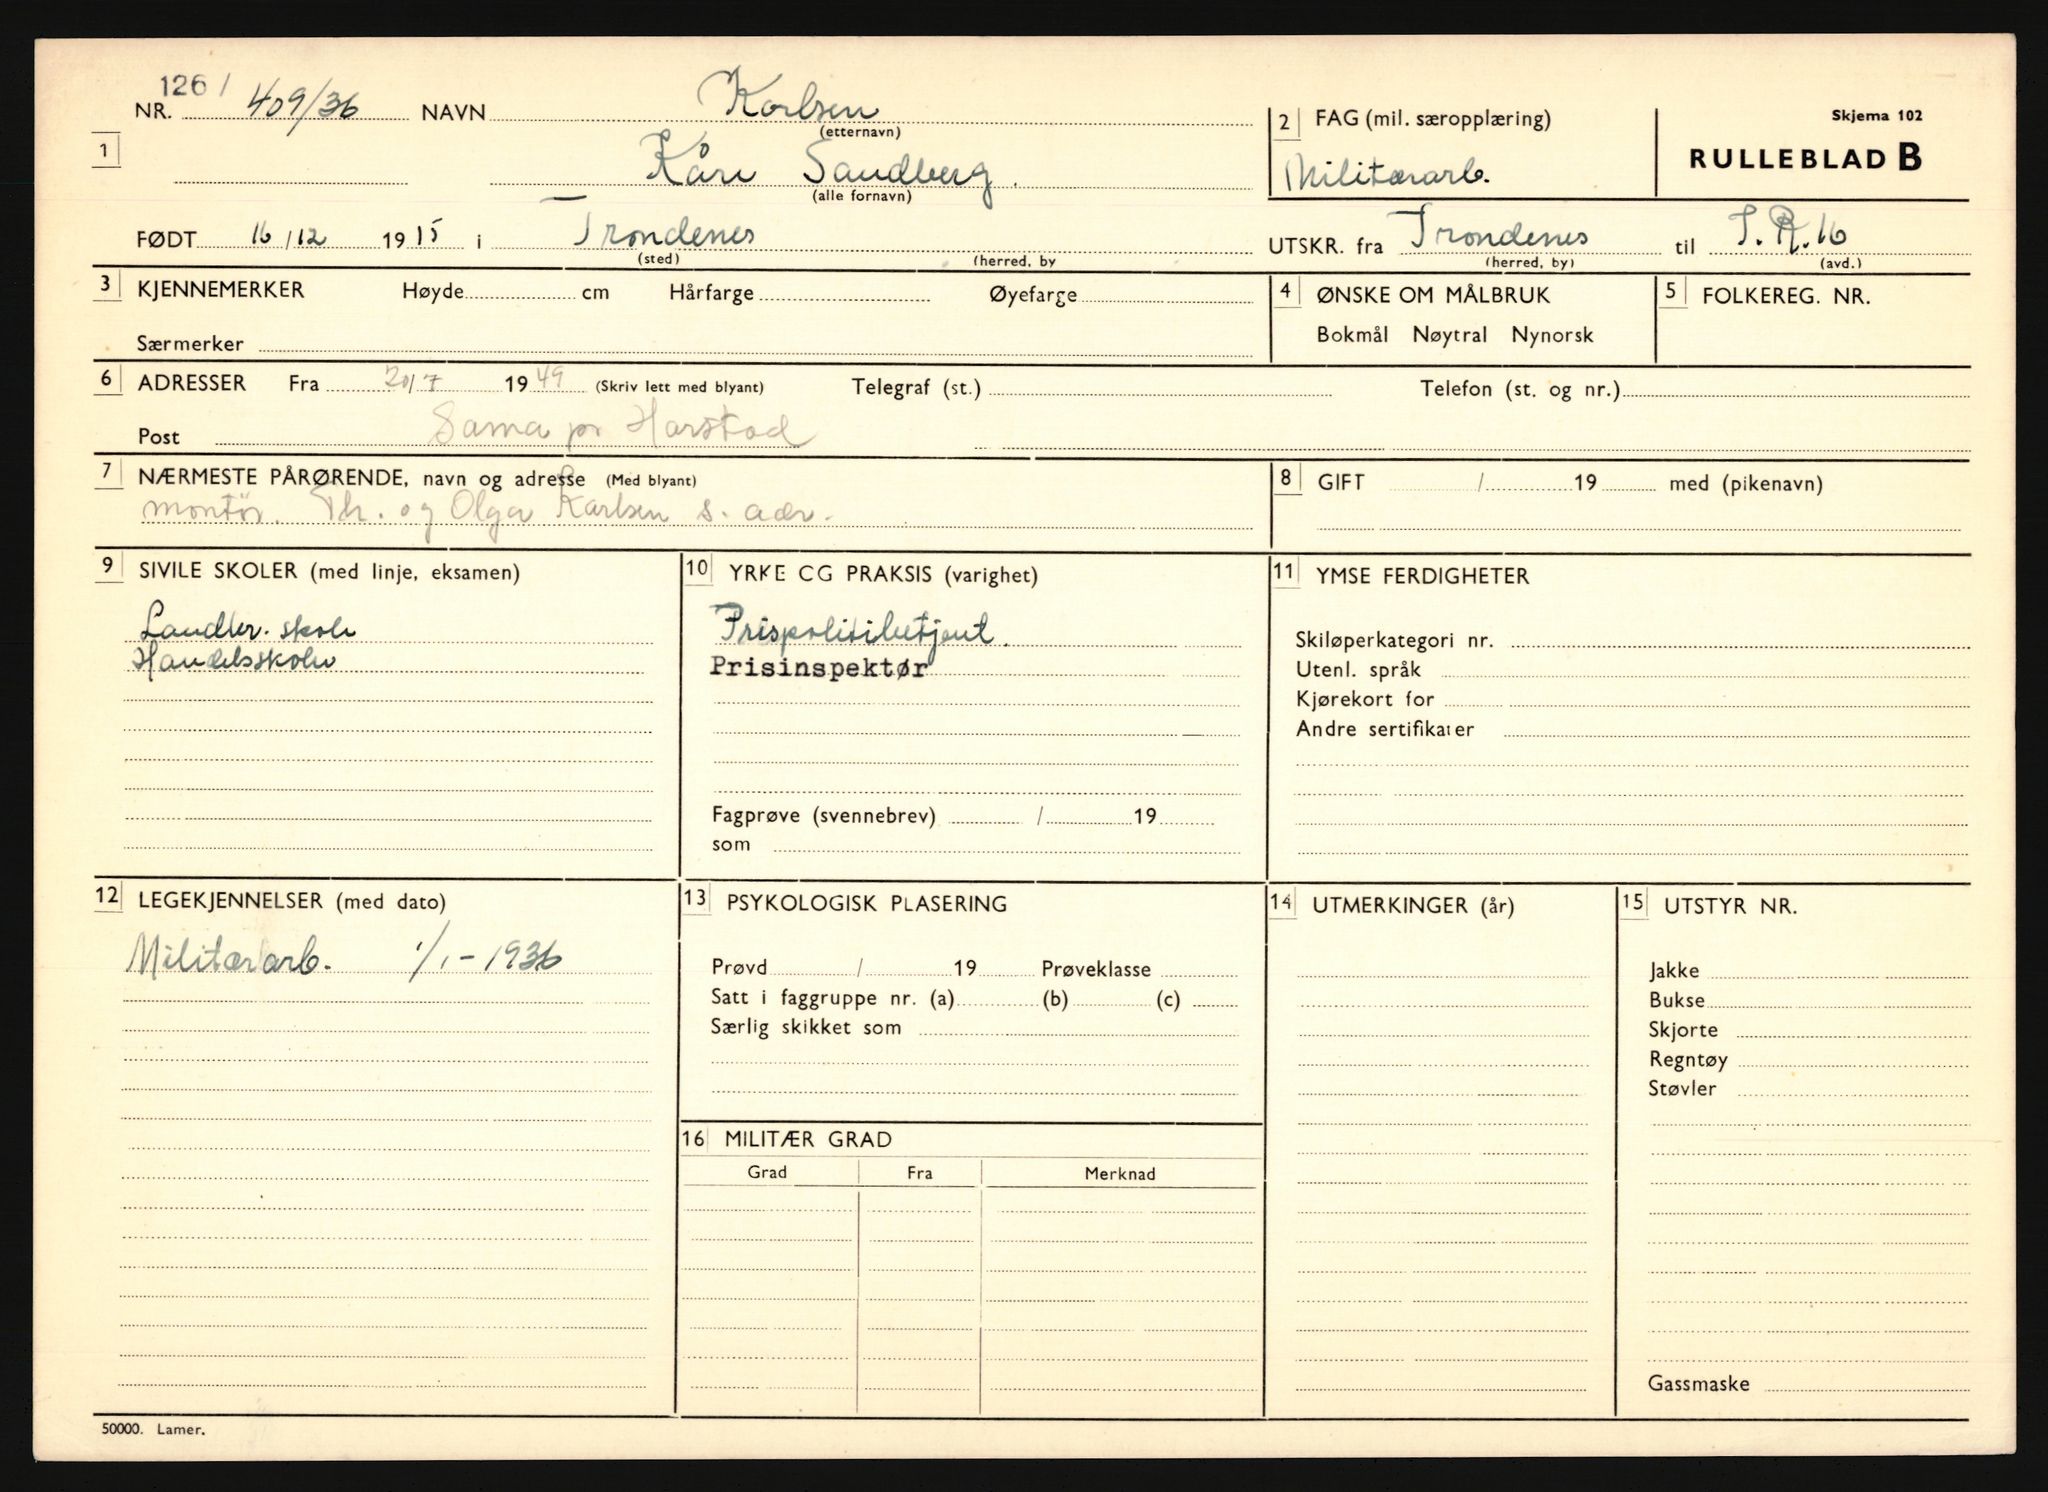 126 /
NR. 409/36 NAVN Karlsen
(etternavn)
1 Kåre Sandberg.
(alle fornavn)
2 FAG (mil. særopplæring)
Militærarb.
Skjema 102
RULLEBLAD B
FØDT 16/12 1915 i Trondenes
(sted) (herred, by
UTSKR. fra Trondenes til I.R.16
(herred, by) (avd.)
3 KJENNEMERKER Høyde cm Hårfarge Øyefarge
Særmerker
4 ØNSKE OM MÅLBRUK
Bokmål Nøytral Nynorsk
5 FOLKEREG. NR.
6 ADRESSER Fra 20/7 1949 (Skriv lett med blyant) Telegraf (st.) Telefon (st. og nr.)
Post Sama pr Harstad
7 NÆRMESTE PÅRØRENDE, navn og adresse (Med blyant)
montør. Th. og Olga Karlsen s. adr.
8 GIFT / 19 med (pikenavn)
9 SIVILE SKOLER (med linje, eksamen)
Landbr. skole
Handelsskole
10 YRKE CG PRAKSIS (varighet)
Prispolitibetjent.
Prisinspektør
Fagprøve (svennebrev) / 19
som
11 YMSE FERDIGHETER
Skiløperkategori nr.
Utenl. språk
Kjørekort for
Andre sertifikater
12 LEGEKJENNELSER (med dato)
Militærarb. 1/1-1936
13 PSYKOLOGISK PLASERING
Prøvd / 19 Prøveklasse
Satt i faggruppe nr. (a) (b) (c)
Særlig skikket som
14 UTMERKINGER (år)
15 UTSTYR NR.
Jakke
Bukse
Skjorte
Regntøy
Støvler
Gassmaske
16 MILITÆR GRAD
Grad Fra Merknad
50000. Lamer.